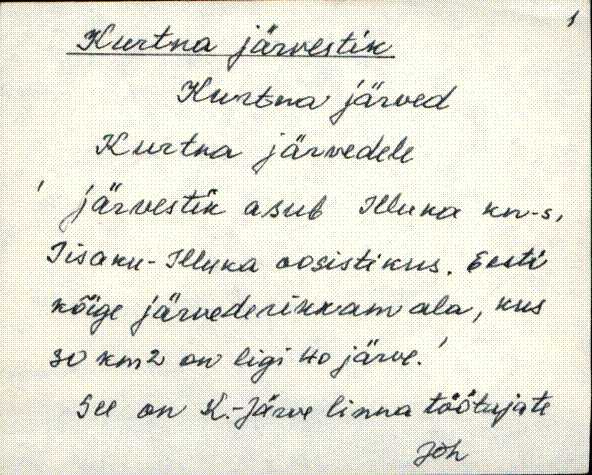 1
Kurtna järvestik
Kurtna järved
Kurtna järvedele
' järvestik asub Illuka kn-s,
Iisaku-Illuka oosistikus. Eesti
kõige järvederikkam ala, kus
30 km2 on ligi 40 järve.'
See on K.-Järve linna töötajate
Joh